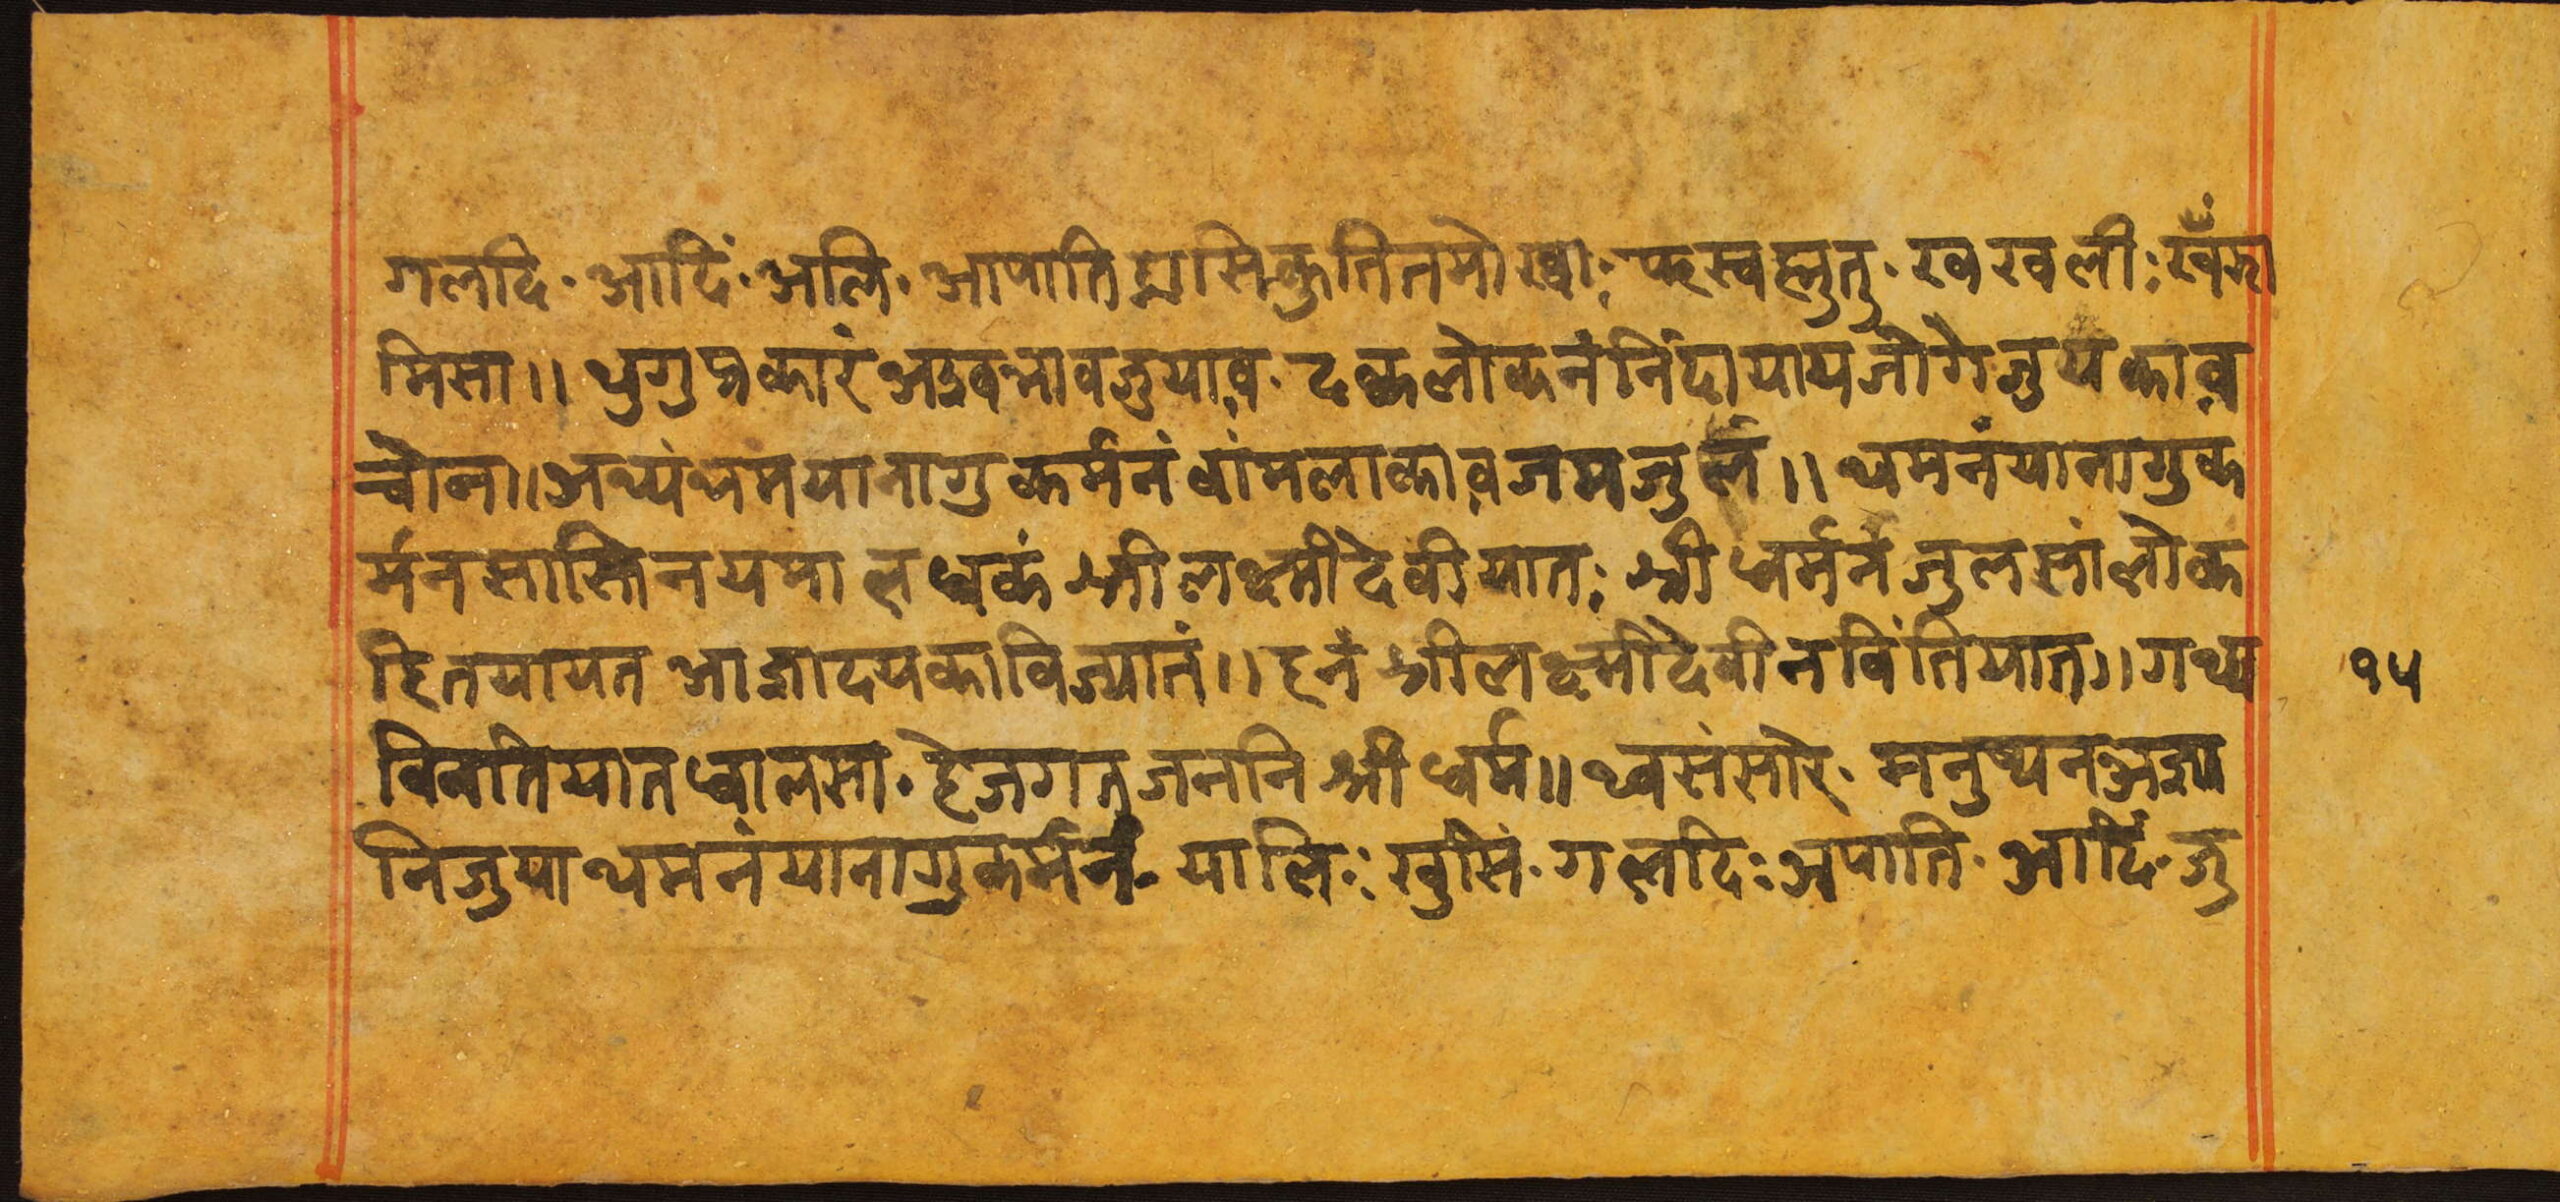 गलदि · आदिं · अलि · आपाति ह्रासि कुतितमो ख्वा : फस्वह्मुतु · खवखवली : खँरू
मिसा ॥ थुगु प्रकारं अदवभावजुयाव · दक्वलोकनं निंदायाय जोगै जुयकाव
चोन ॥ अथ्यं थमयानागु कर्मनं वांमलाकाव जमजुल ॥ थमनंयानागु क
र्मन सास्तिनयमाल धकं श्रीलक्ष्मीदेवीयात : श्रीधर्मनं जुलसां लोक
हितयायत आज्ञादयकाविज्यातं ॥ हनं श्रीलक्ष्मीदेवीन विंतियात ॥ गथ्य
विनतियात धालसा · हेजगत्जननि श्रीधर्म ॥ थ्वसंसारे · मनुष्यन अज्ञा
निजुया थमनंयानागु कर्मनं - यालि : खुसिं · गलदि : अपाति · आदिं · जु
१५